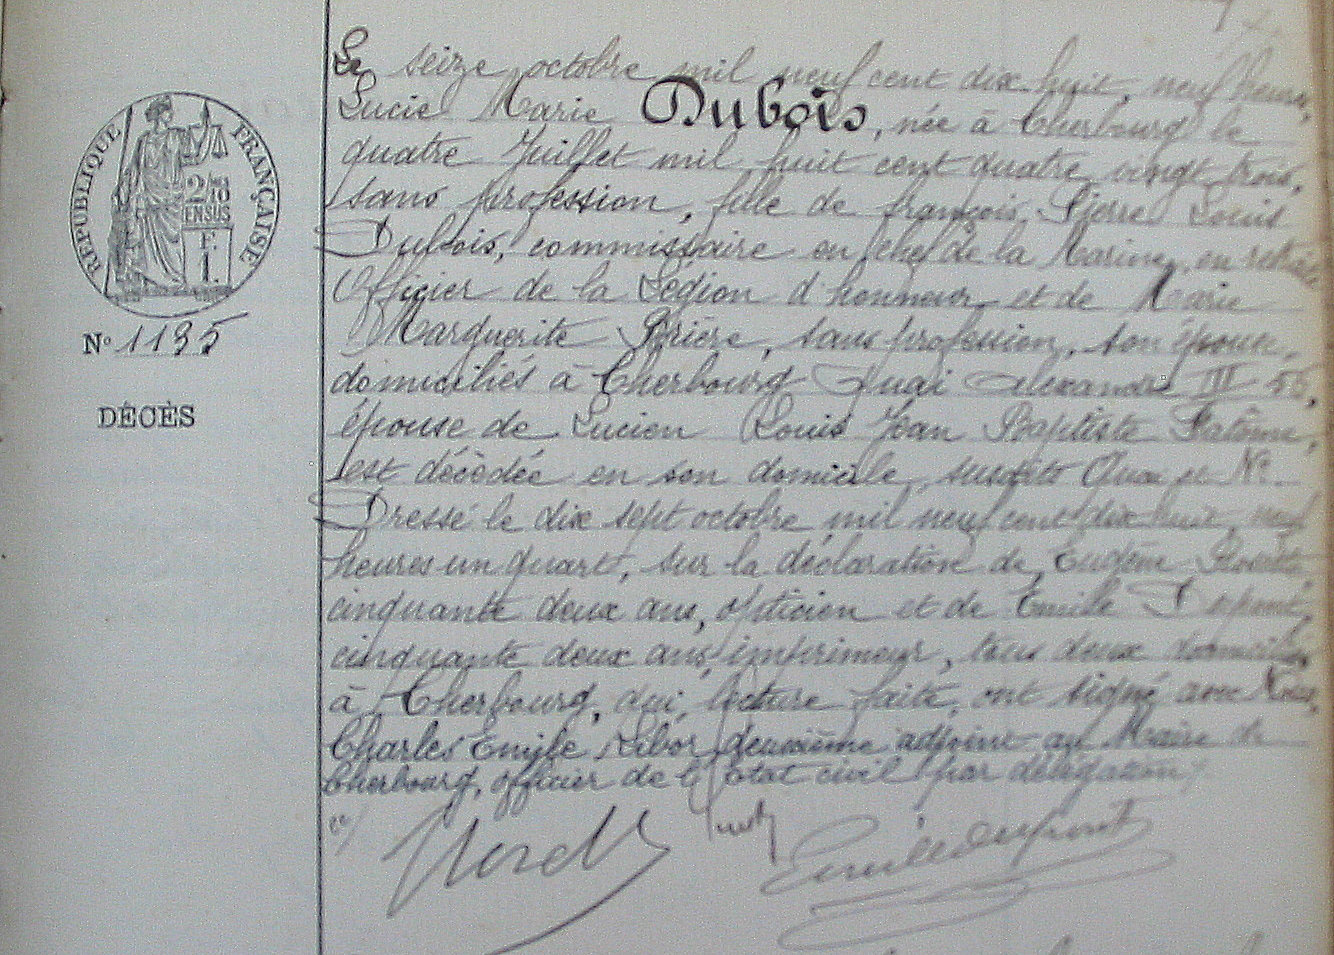 RÉPUBLIQUE FRANÇAISE
2/10
EN SUS
F.
1.
N° 1135
DÉCÈS
Le seize octobre mil neuf cent dix huit, neuf heures,
Lucie Marie Dubois, née à Cherbourg le
quatre Juillet mil huit cent quatre vingt trois,
sans profession, fille de françois Pierre Louis
Dubois, commissaire en chef de la Marine, en retraite
Officier de la Légion d'honneur et de Marie
Marguerite Brière, sans profession, son épouse,
domiciliés à Cherbourg Quai Alexandre III 55,
épouse de Lucien Louis Jean Baptiste
est décédée en son domicile, susdits Quai et N°.
Dressé le dix sept octobre mil neuf cent dix huit, neuf
heures un quart, sur la déclaration de Eugène
cinquante deux ans, opticien et de Emile Dupont,
cinquante deux ans, imprimeur, tous deux domiciliés
à Cherbourg, qui, lecture faite, ont signé avec Nous,
Charles Emile deuxième adjoint au Maire de
Cherbourg, officier de l'Etat civil par délégation
Emile Dupont